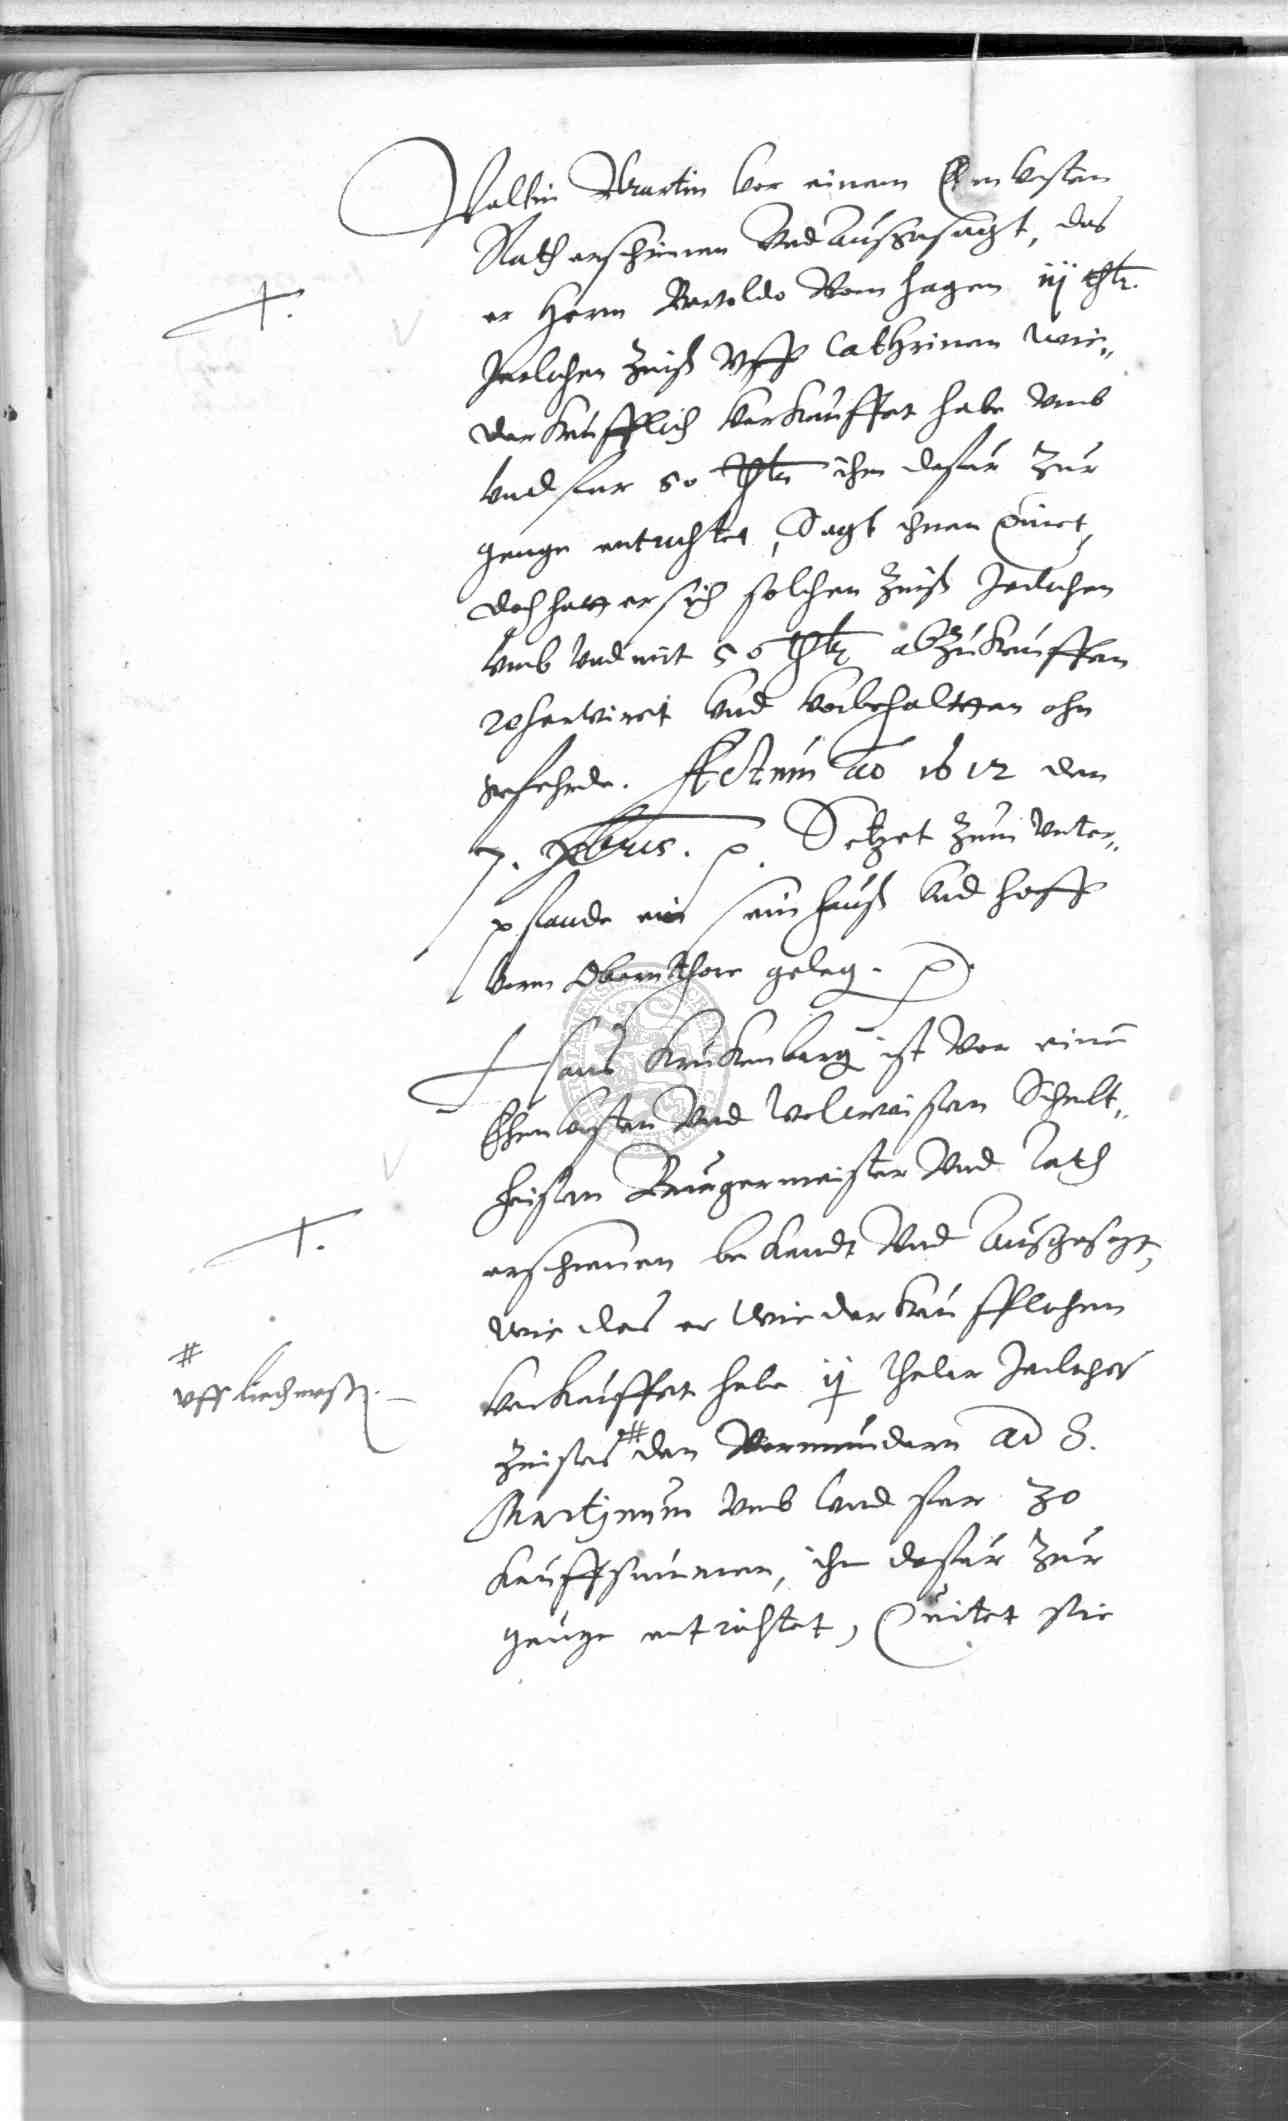 Valtin Martin vor einem Ehrnvesten
Rath erschienen Vnd Außgesagt, das
er Herrn Bartoldo Vom Hagen iij thlr.
Jerlichen Zinß Vff Cathrinen wie„
derkeufflich verkauffet habe Vmb
vnd fur 50 thlr ihm dafür Zur
genuge entrichtet, Sagt ihnen Quiet,
doch hatt er sich solchen Zinß Jerlichen
vmb vnd mit 50 thlr abzukauffen
vnd vorbehaltten ohn
gefehrde. Actum ao 1612 den
7. Xbris. p. Setzet zum Vnter„
pfande ein sein Hauß vnd Hoff
vorm Obernthore geleg. p.
Hans Krukenberg ist Vor einem
Ehrnvesten Vnd Wolweisen Schult„
heisen Burgermeister Vnd Rath
erschienen bekandt Vnd Außgesagt,
wie das er wiederkeufflichen
verkauffet habe ij thaler Jerliches
Zinses # den Vormundern ad S.
Martinum Vmb vnd fur 30
kauffsummen, ihm dafür Zur
genuge entrichtet, Quitet sie
#
vff